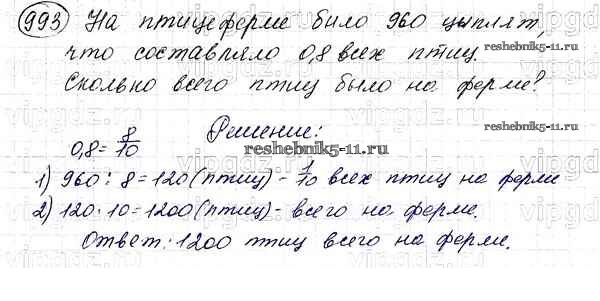 993 На птицеферме было 960 цыплят,
что составляло 0,8 всех птиц.
reshebnik5-11.ru
Сколько всего птиц было на ферме?
Решение:
0,8 = 8/10
reshebnik5-11.ru
1) 960 : 8 = 120 (птиц) - 1/10 всех птиц на ферме
2) 120 · 10 = 1200 (птиц) - всего на ферме.
Ответ: 1200 птиц всего на ферме.
reshebnik5-11.ru